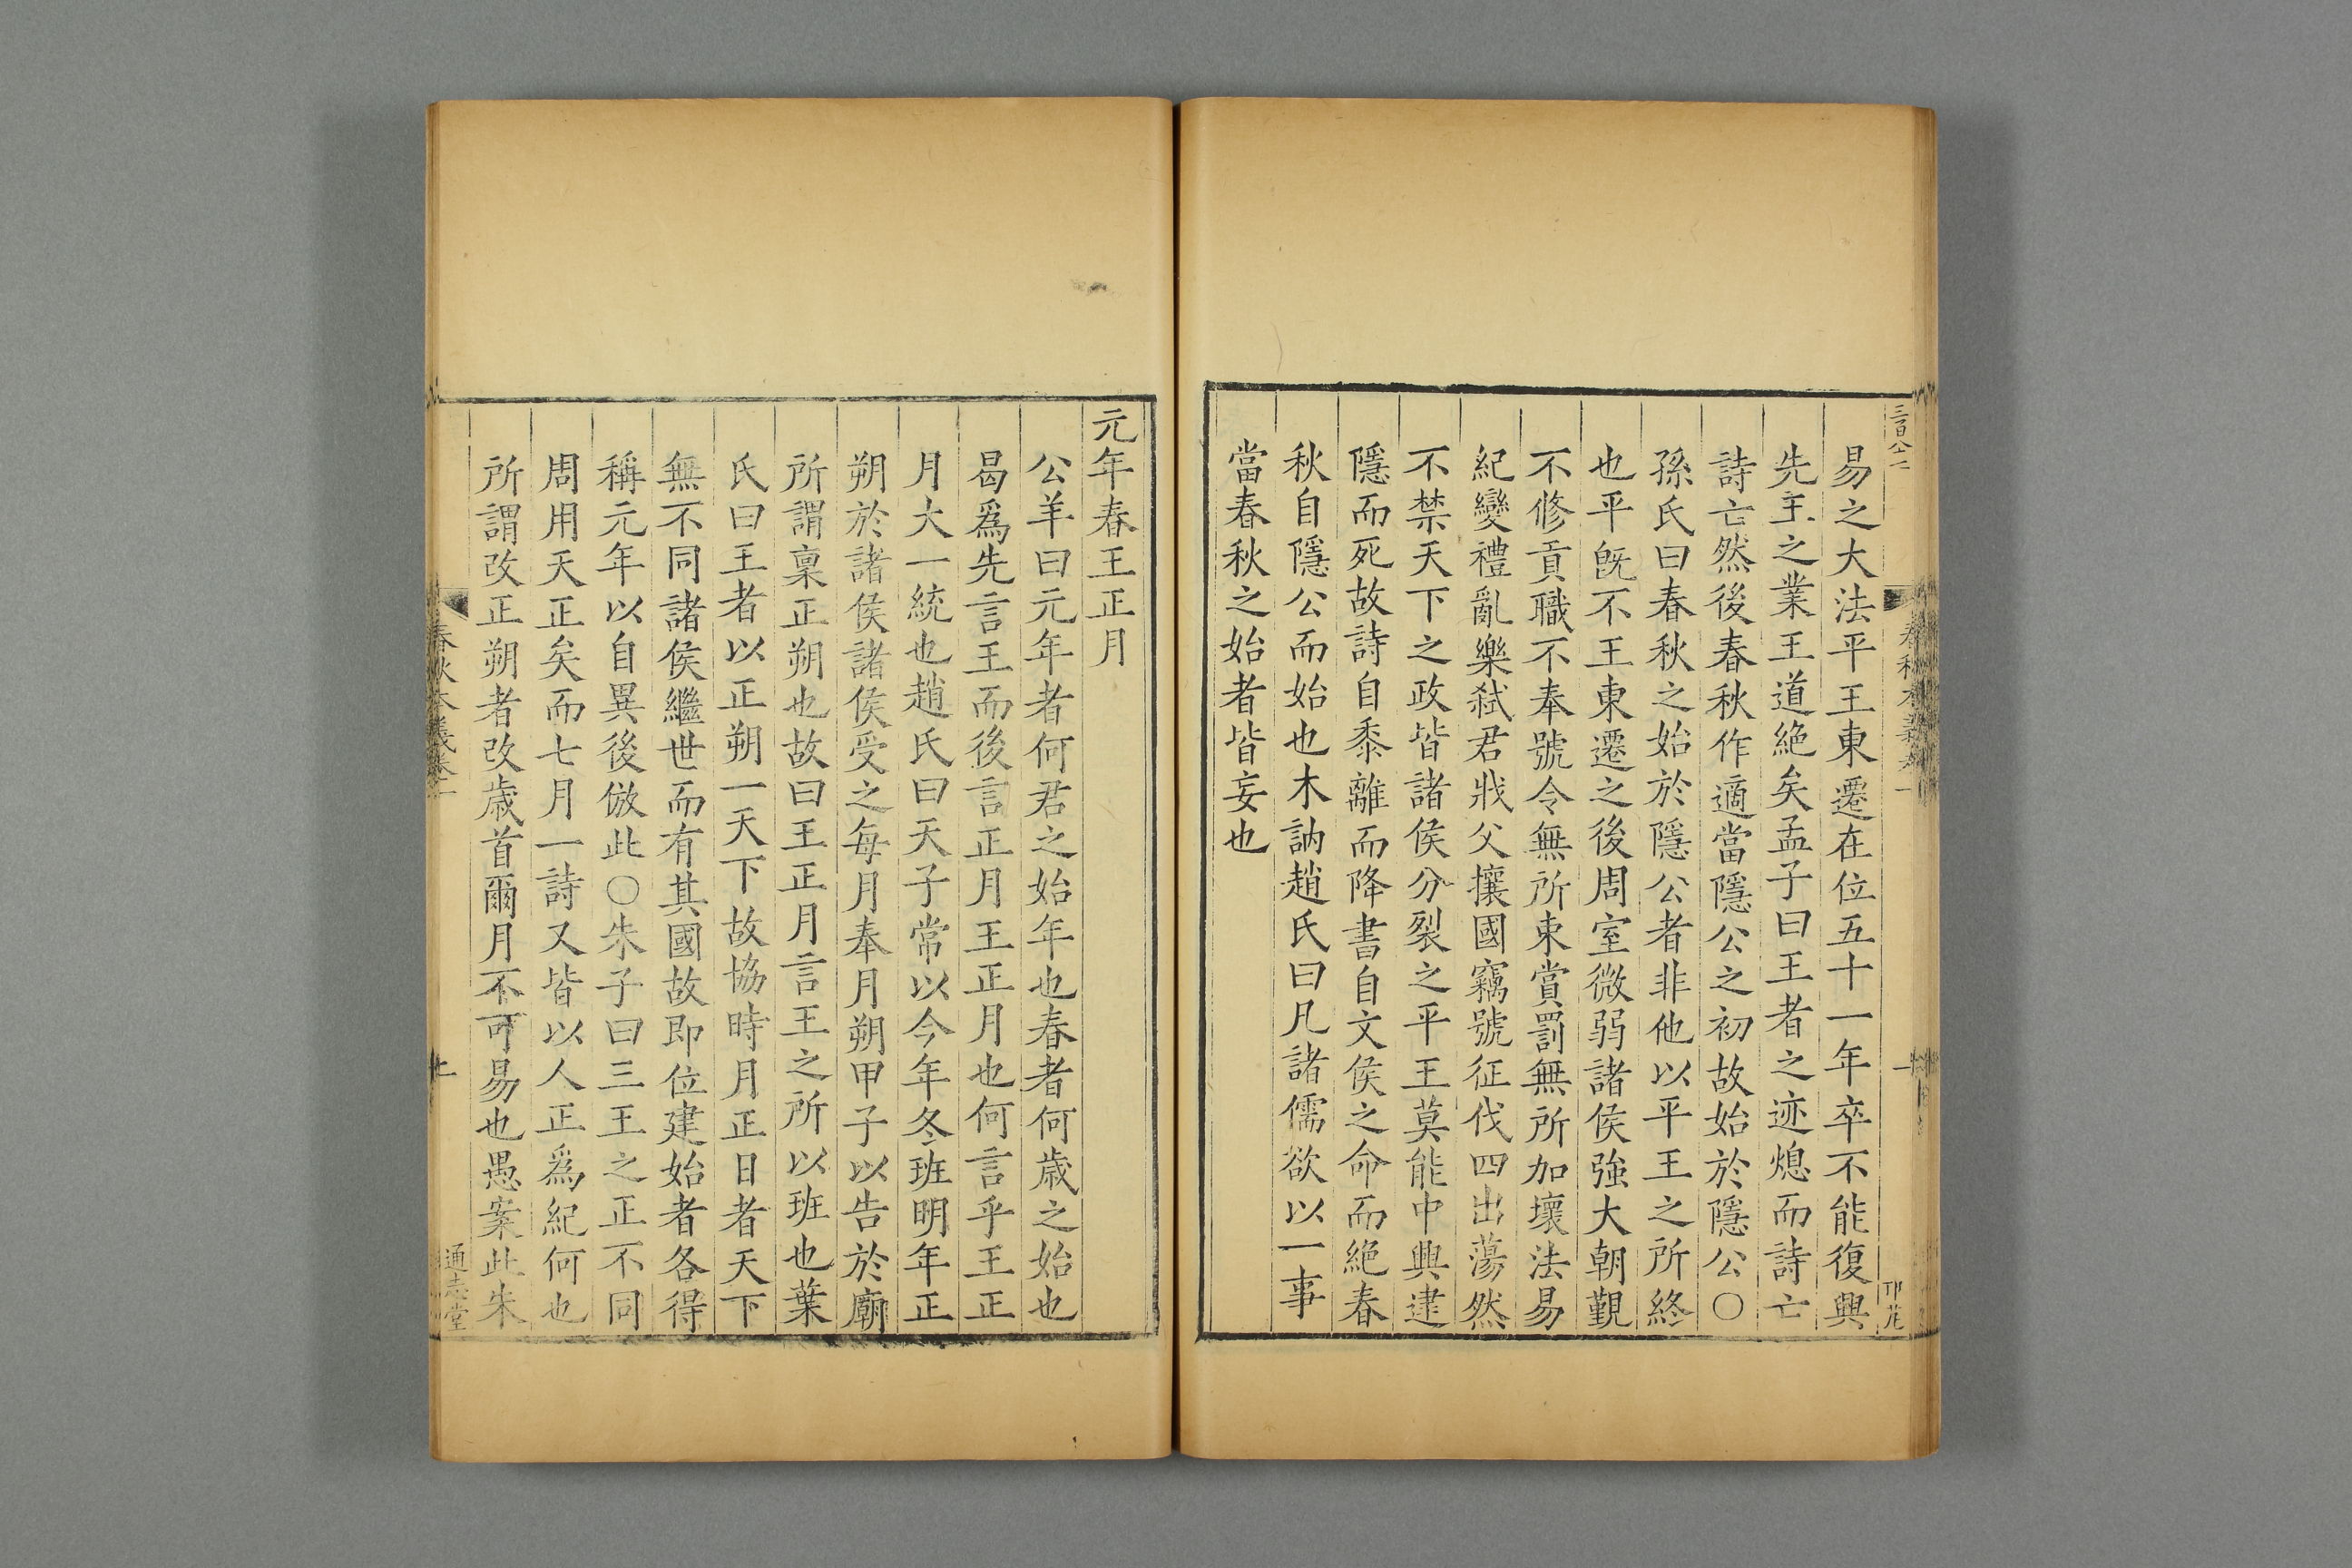 易之大法平王東遷在位五十一年卒不能復興
先王之業王道絶矣孟子曰王者之迹熄而詩亡
詩亡然後春秋作適當隱公之初故始於隱公○
孫氏曰春秋之始於隱公者非他以平王之所終
也平旣不王東遷之後周室微弱諸侯強大朝覲
不修貢職不奉號令無所束賞罰無所加壞法易
紀變禮亂樂弑君戕父攘國竊號征伐四出蕩然
不禁天下之政皆諸侯分裂之平王莫能中興逮
隱而死故詩自黍離而降書自文侯之命而絶春
秋自隱公而始也木訥趙氏曰凡諸儒欲以一事
當春秋之始者皆妄也
元年春王正月
公羊曰元年者何君之始年也春者何歲之始也
曷爲先言王而後言正月王正月也何言乎王正
月大一統也趙氏曰天子常以今年冬班明年正
朔於諸侯諸侯受之每月奉月朔甲子以告於廟
所謂稟正朔也故曰王正月言王之所以班也葉
氏曰王者以正朔一天下故協時月正日者天下
無不同諸侯繼世而有其國故即位建始者各得
稱元年以自異後倣此○朱子曰三王之正不同
周用天正矣而七月一詩又皆以人正爲紀何也
所謂改正朔者改歲首爾月不可易也愚案此朱
春秋本義卷一
通志堂